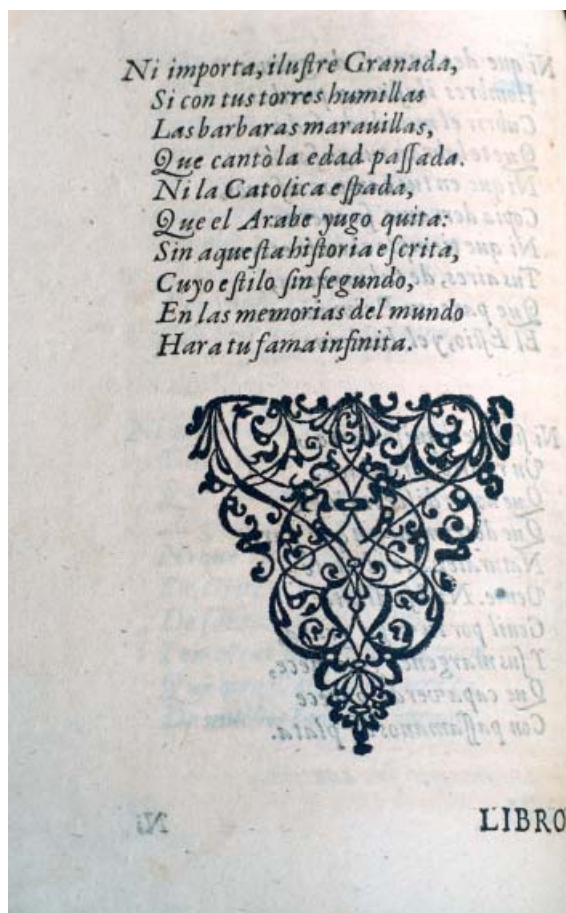 Ni importa, ilustre Granada,
Si con tus torres humillas
Las barbaras marauillas,
Que cantò la edad passada.
Ni la Catolica espada,
Que el Arabe yugo quita:
Sin aquesta historia escrita,
Cuyo estilo sin segundo,
En las memorias del mundo
Hara tu fama infinita.
LIBRO